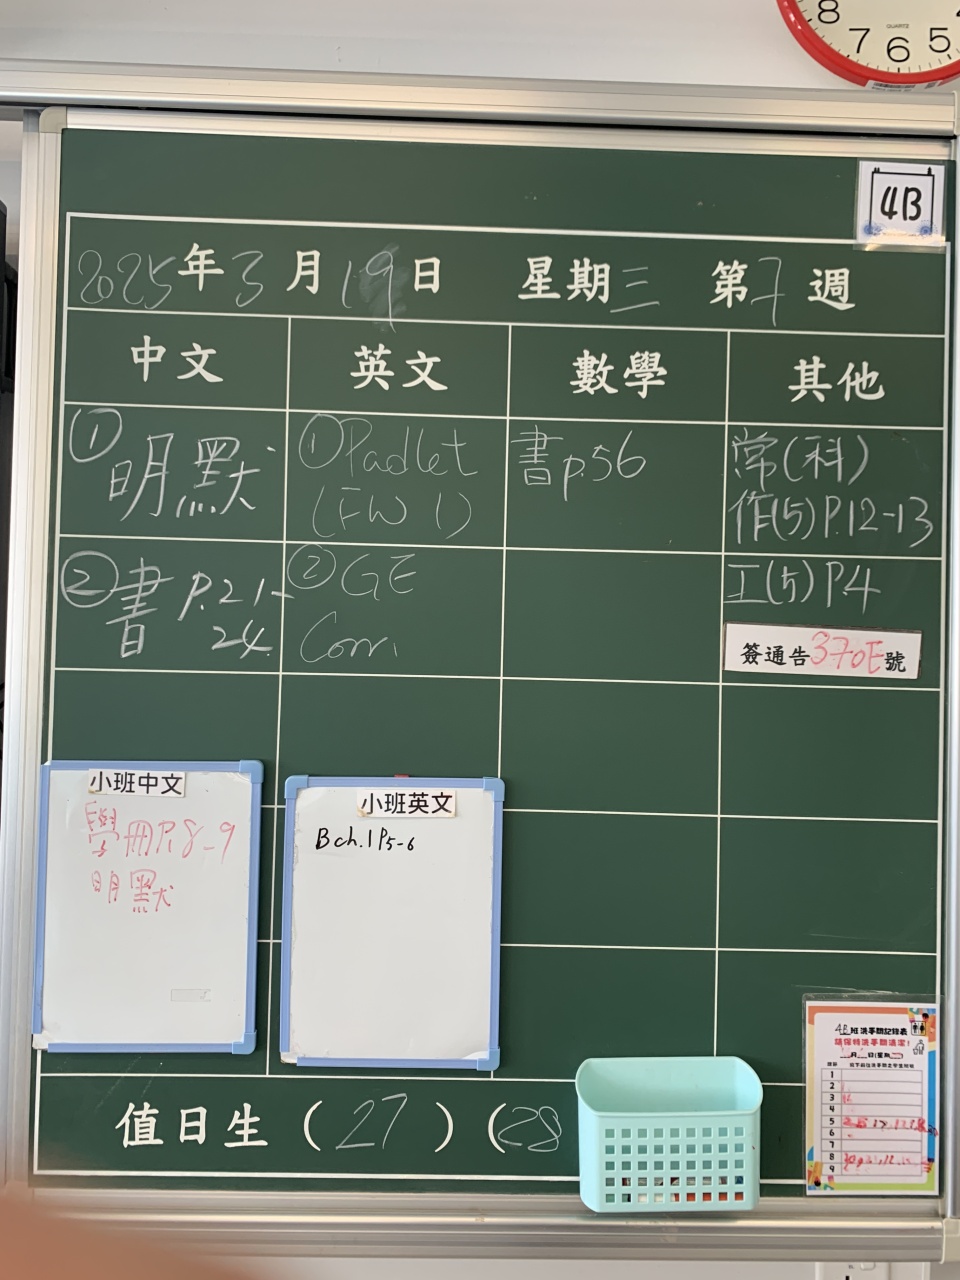 8 7 6 5
QUARTZ
4B
2025年3月19日 星期三 第7週
中文 英文 數學 其他
①明默
②書 P.21-
24.
①Padlet
(FW 1)
②GE
Corr.
書p.56
常(科)
作(5)P.12-13
工(5)P.4
簽通告370E號
小班中文
學冊P.8-9
明默
小班英文
B ch.1 P5-6
值日生(27)(28
4B班洗手間記錄表
請保持洗手間清潔!
1
2
3
4
5
6
7
8
9